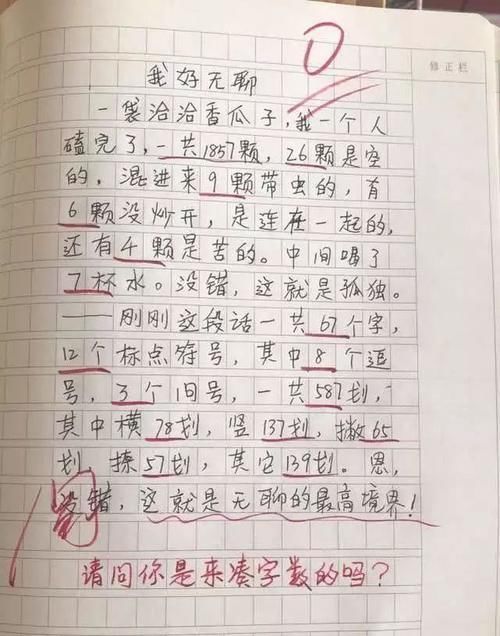 0
修正栏
我好无聊
一袋洽洽香瓜子，我一个人
磕完了，一共1857颗，26颗是空
的，混进来9颗带虫的，有
6颗没炒开，是连在一起的，
还有4颗是苦的。中间喝了
7杯水。没错，这就是孤独。
——刚刚这段话一共67个字，
12个标点符号，其中8个逗
号，3个句号，一共587划，
其中横78划，竖137划，撇65
划 捺57划，其它139划。恩，
没错，这就是无聊的最高境界！
阅
请问你是来凑字数的吗？